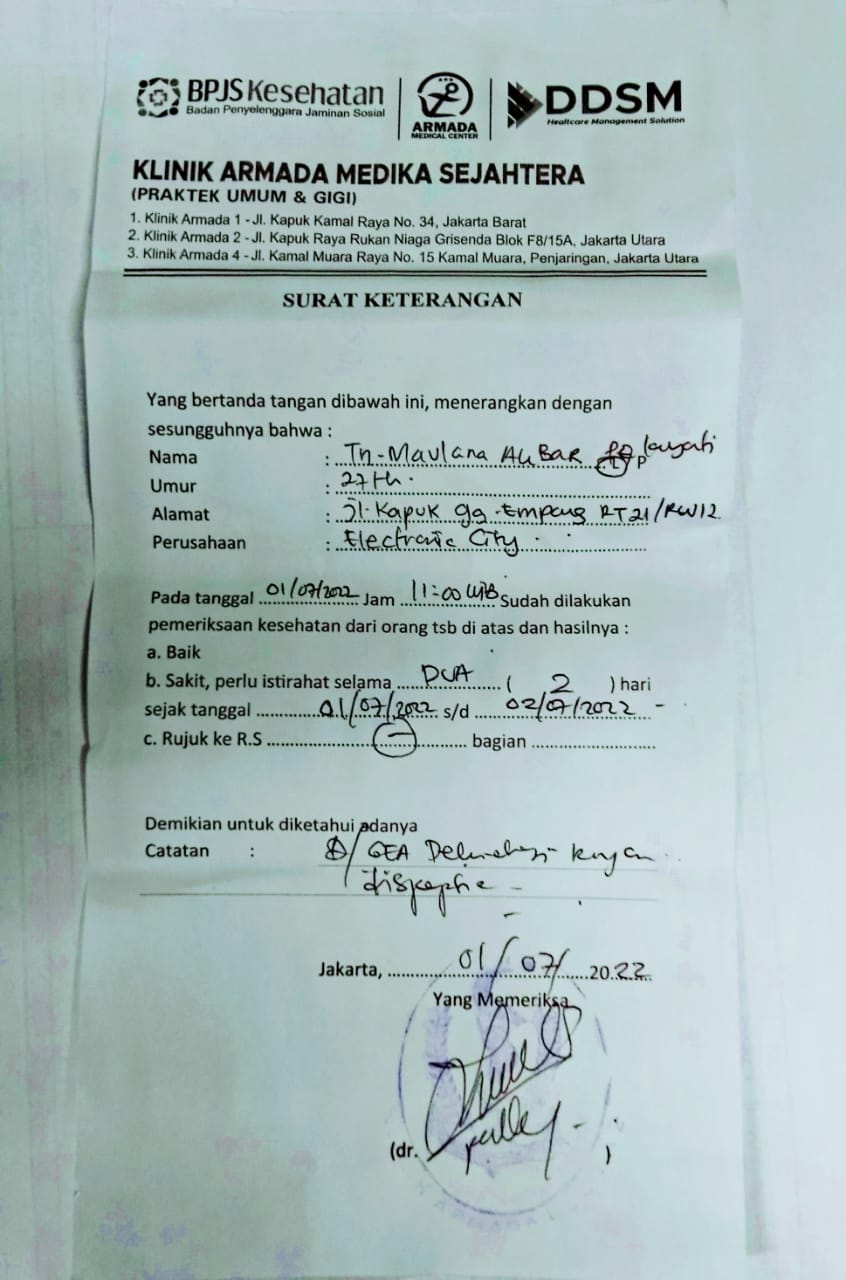 BPJS Kesehatan
Badan Penyelenggara Jaminan Sosial
ARMADA
MEDICAL CENTER
DDSM
Healtcare Management Solution
KLINIK ARMADA MEDIKA SEJAHTERA
(PRAKTEK UMUM & GIGI)
1. Klinik Armada 1 - Jl. Kapuk Kamal Raya No. 34, Jakarta Barat
2. Klinik Armada 2 - Jl. Kapuk Raya Rukan Niaga Grisenda Blok F8/15A, Jakarta Utara
3. Klinik Armada 4 - Jl. Kamal Muara Raya No. 15 Kamal Muara, Penjaringan, Jakarta Utara
SURAT KETERANGAN
Yang bertanda tangan dibawah ini, menerangkan dengan
sesungguhnya bahwa :
Nama : Tn. Maulana Akbar L/P
Umur : 27 th.
Alamat : Jl. Kapuk gg. Empang RT 21/RW 12
Perusahaan : Electronic City
Pada tanggal 01/07/2022 Jam 11:00 WIB Sudah dilakukan
pemeriksaan kesehatan dari orang tsb di atas dan hasilnya :
a. Baik
b. Sakit, perlu istirahat selama DUA ( 2 ) hari
sejak tanggal 01/07/2022 s/d 02/07/2022 -
c. Rujuk ke R.S - bagian
Demikian untuk diketahui adanya
Catatan : GEA
Jakarta, 01/07/2022
Yang Memeriksa
(dr. )